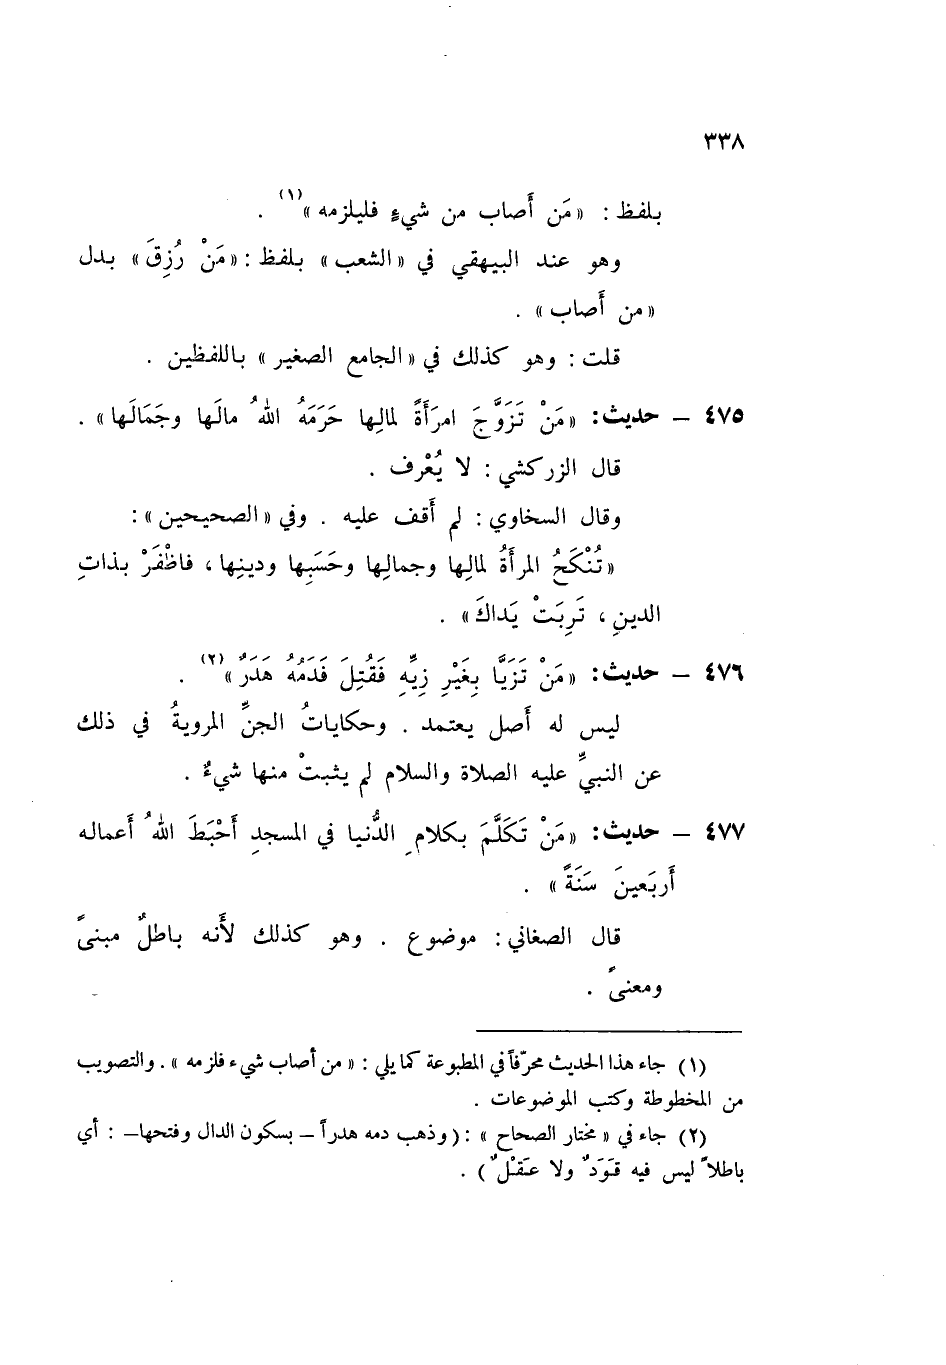 ٣٣٨
بلفظ : « مَن أَصاب من شيءٍ فليلزمه »(١) .
وهو عند البيهقي في « الشعب » بلفظ : « مَنْ رُزِقَ » بدل
« من أَصاب » .
قلت : وهو كذلك في « الجامع الصغير » باللفظين .
٤٧٥ – حديث: « مَنْ تَزَوَّجَ امرَأَةً لمالِها حَرَمَهُ اللهُ مالَها وجَمَالَها » .
قال الزركشي : لا يُعْرف .
وقال السخاوي : لم أَقف عليه . وفي « الصحيحين » :
« تُنْكَحُ المرأَةُ لمالِها وجمالِها وحَسَبِها ودينِها ، فاظْفَرْ بذاتِ
الدينِ ، تَرِبَتْ يَداكَ » .
٤٧٦ – حديث: « مَنْ تَزَيَّا بِغَيْرِ زِيِّهِ فَقُتِلَ فَدَمُهُ هَدَرٌ »(٢) .
ليس له أَصل يعتمد . وحكاياتُ الجنِّ المرويةُ في ذلك
عن النبيِّ عليه الصلاة والسلام لم يثبتْ منها شيءٌ .
٤٧٧ – حديث: « مَنْ تَكَلَّمَ بكلامِ الدُّنيا في المسجدِ أَحْبَطَ اللهُ أَعماله
أَربَعينَ سَنَةً » .
قال الصغاني : موضوع . وهو كذلك لأَنه باطلٌ مبنىً
ومعنىً .
(١) جاء هذا الحديث محرّفاً في المطبوعة كما يلي : « من أصاب شيء فلزمه » . والتصويب
من المخطوطة وكتب الموضوعات .
(٢) جاء في « مختار الصحاح » : ( وذهب دمه هدراً – بسكون الدال وفتحها – : أي
باطلاً ليس فيه قَوَدٌ ولا عَقْلٌ ) .